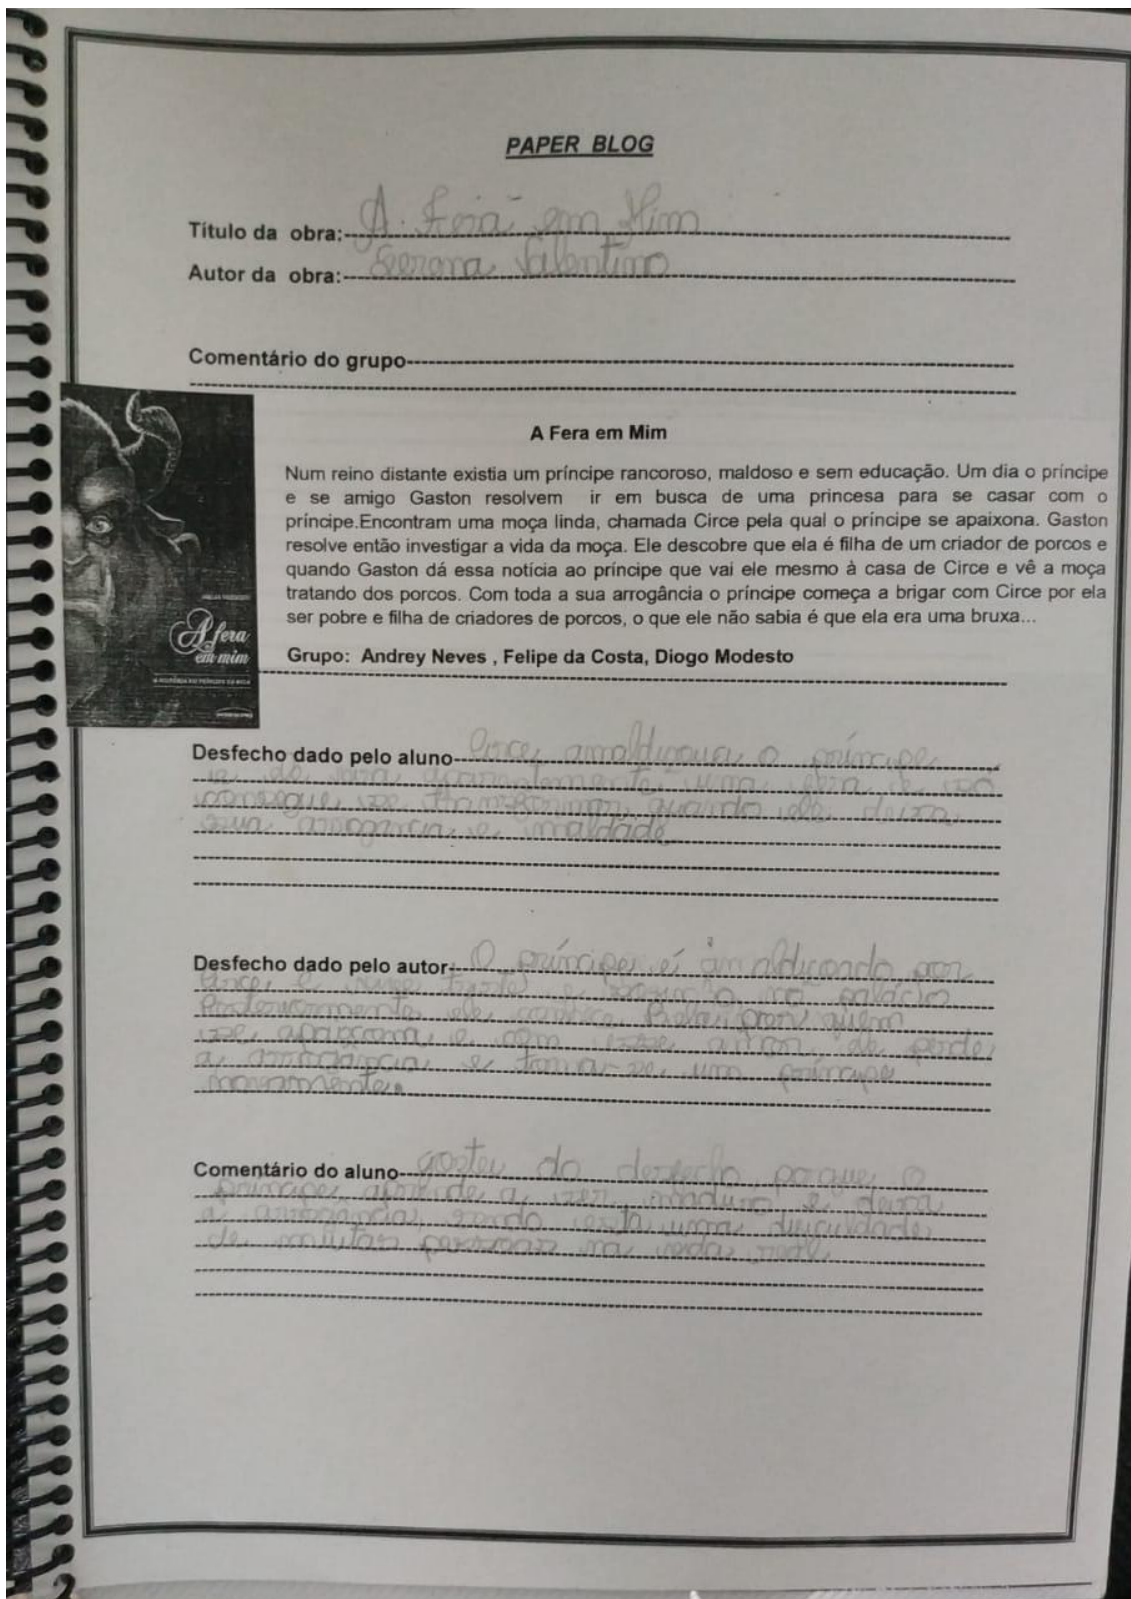 PAPER BLOG
Título da obra: A Fera em Mim
Autor da obra: Serena Valentino
Comentário do grupo
A Fera em Mim
Num reino distante existia um príncipe rancoroso, maldoso e sem educação. Um dia o príncipe
e se amigo Gaston resolvem ir em busca de uma princesa para se casar com o
príncipe.Encontram uma moça linda, chamada Circe pela qual o príncipe se apaixona. Gaston
resolve então investigar a vida da moça. Ele descobre que ela é filha de um criador de porcos e
quando Gaston dá essa notícia ao príncipe que vai ele mesmo à casa de Circe e vê a moça
tratando dos porcos. Com toda a sua arrogância o príncipe começa a brigar com Circe por ela
ser pobre e filha de criadores de porcos, o que ele não sabia é que ela era uma bruxa...
A fera
em mim
Grupo: Andrey Neves , Felipe da Costa, Diogo Modesto
Desfecho dado pelo aluno o príncipe
uma fera e só
consegue se quando ele deixa
sua e maldade
Desfecho dado pelo autor: O príncipe é por
e vive triste e no palácio
ele conhece Bela por quem
se apaixona e com esse amor, ele perde
a arrogância e tornar-se um príncipe
novamente.
Comentário do aluno gostei do desfecho porque o
príncipe aprende a ser maduro e deixa
a arrogância, sendo esta uma
de muitas pessoas na vida real